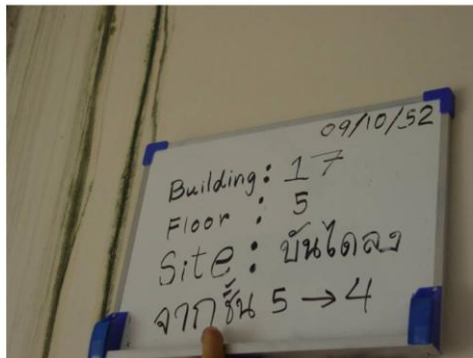 09/10/52
Building: 17
Floor : 5
Site : บันไดลง
จากชั้น 5 → 4